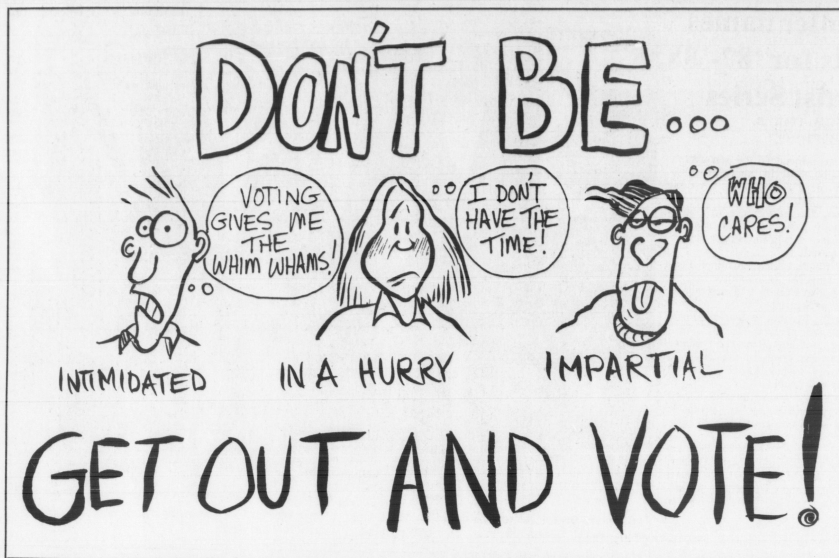 DON'T BE...
VOTING
GIVES ME
THE
WHIM WHAMS!
I DON'T
HAVE THE
TIME!
WHO
CARES!
INTIMIDATED
IN A HURRY
IMPARTIAL
GET OUT AND VOTE!